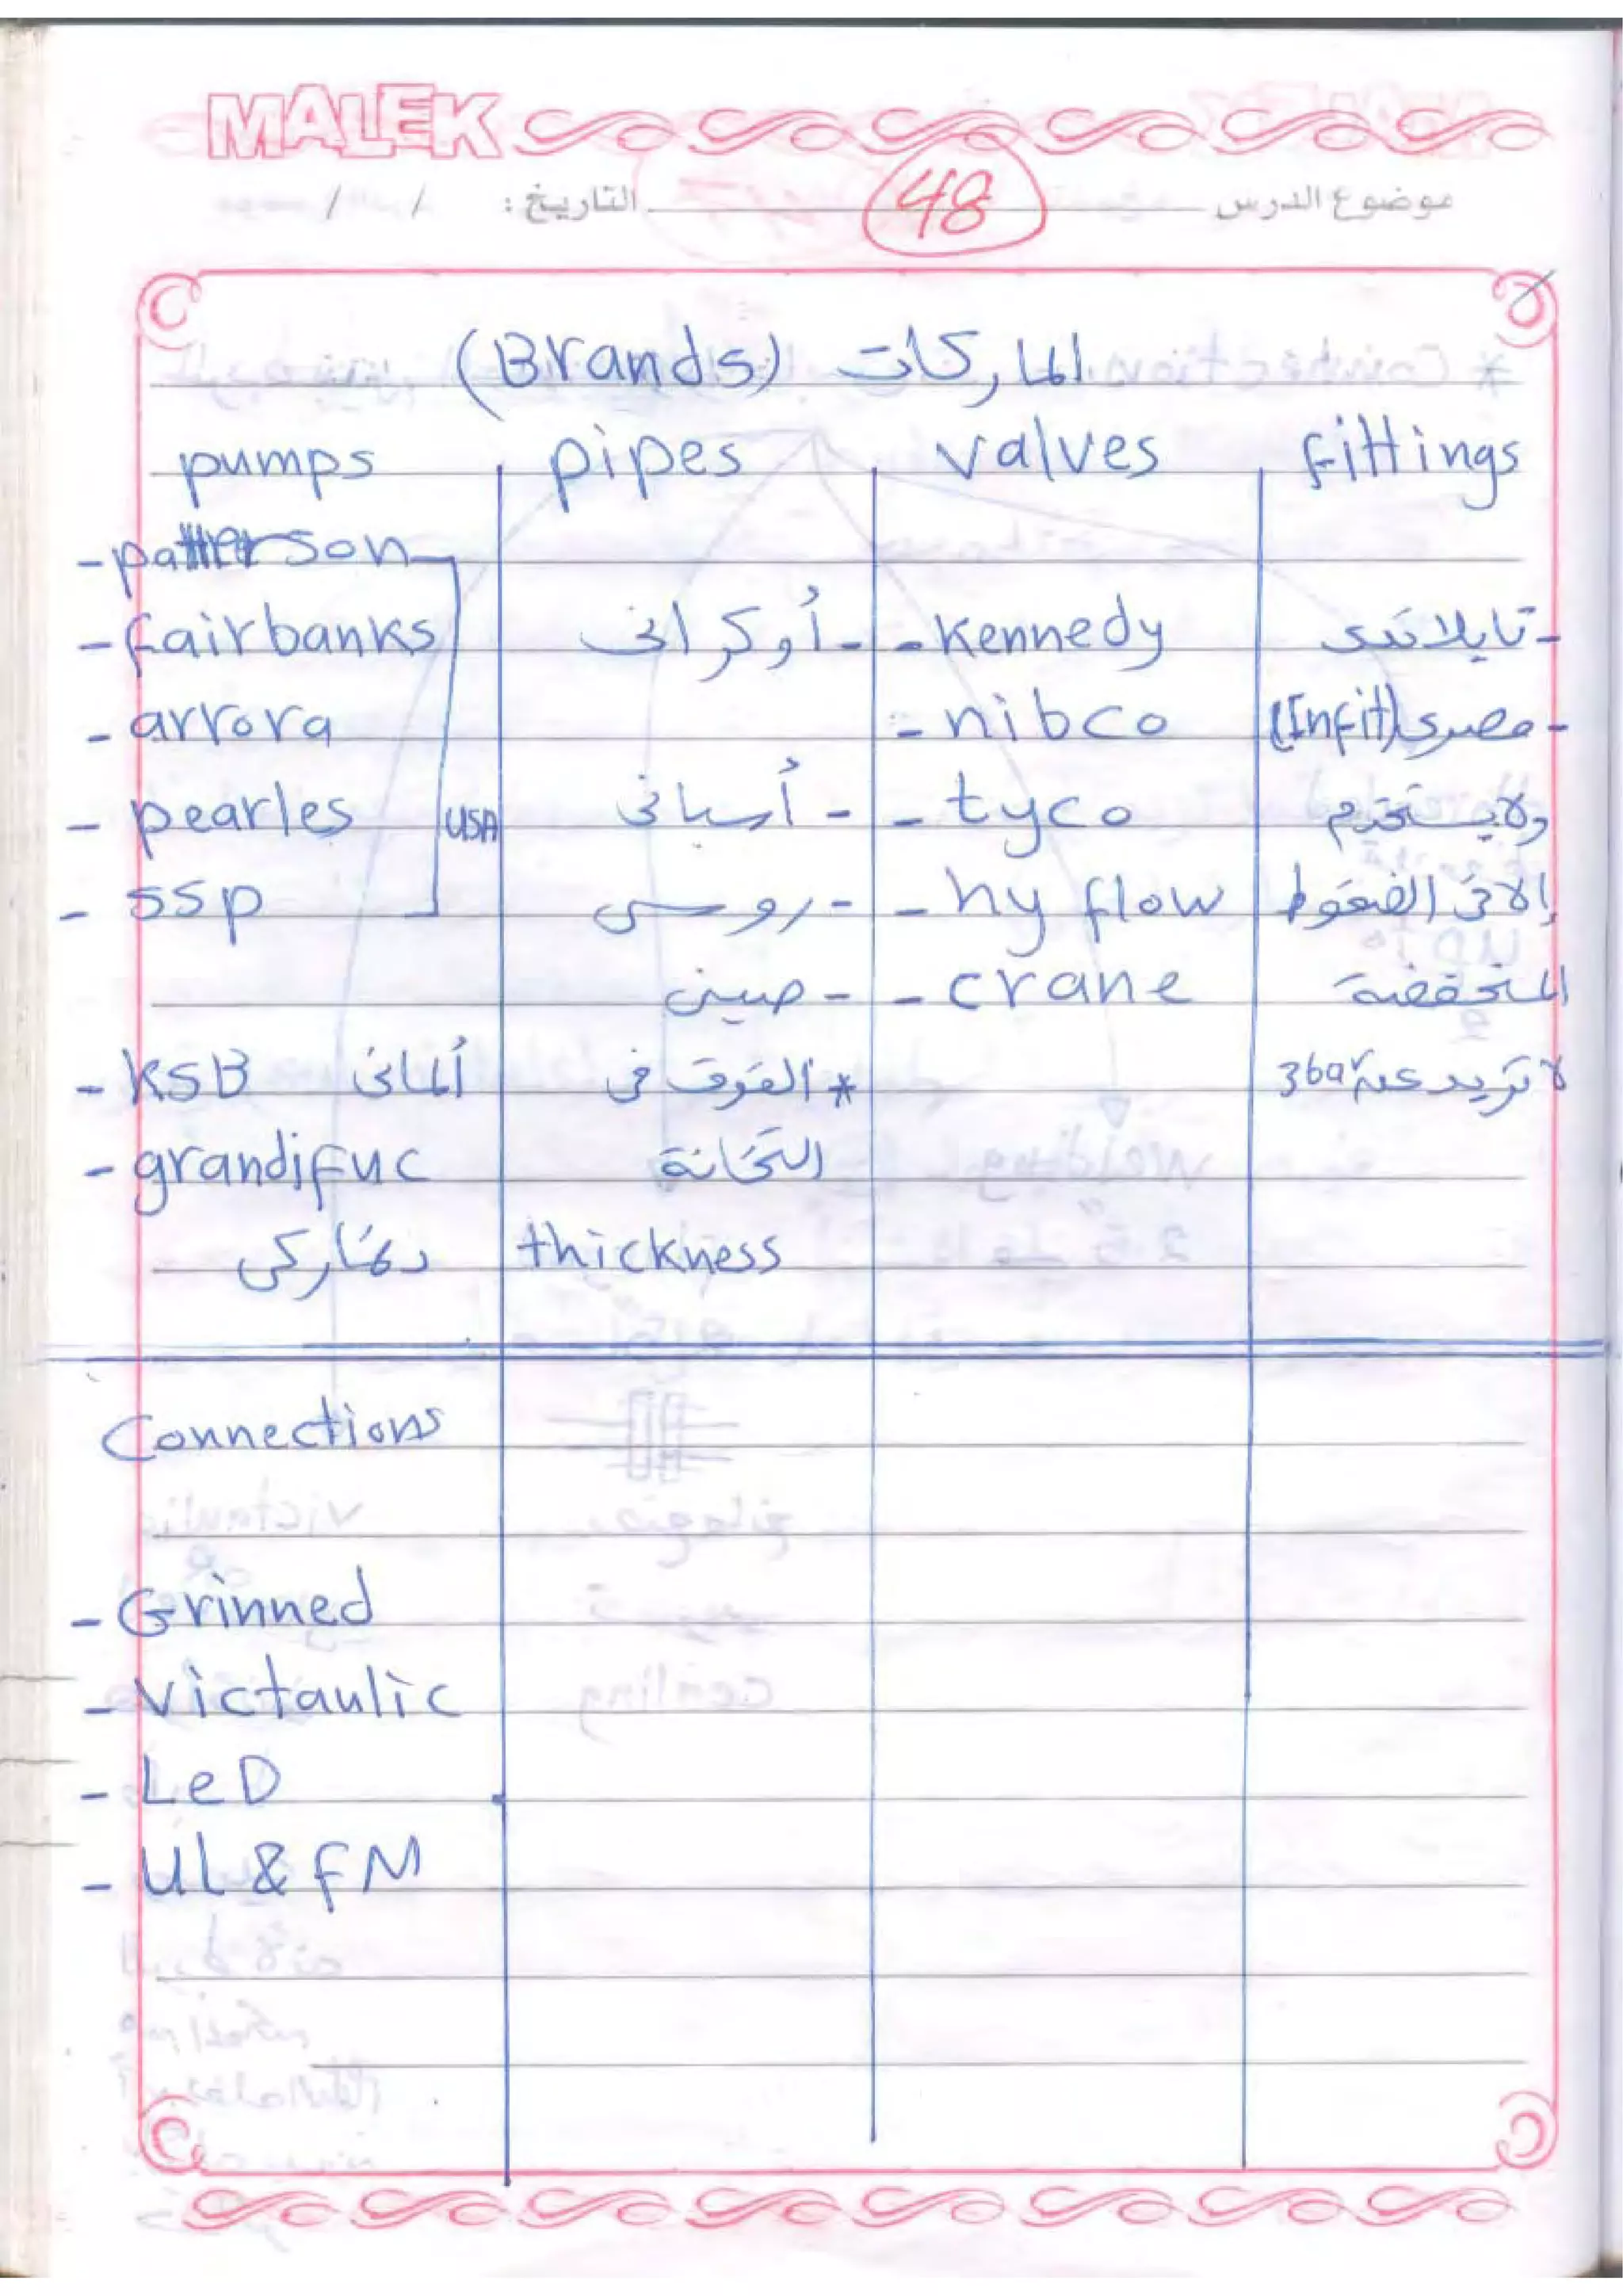 MALEK
موضوع الدرس 48 التاريخ: / /
الماركات (Brands)
pumps pipes valves fittings
- patterson
- fairbanks - أوكرانى - Kennedy - تايلاندى
- arrora - nibco - مصرى (Infit)
- pearles USA - أسبانى - tyco ولا يستخدم
- ssp - روسى - hy flow إلا فى الضغوط
- صينى - crane المنخفضة
- KSB ألمانى * الفرق فى لا تزيد عن 3bar
- grandifuc التخانة
دنماركى thickness
Connections
- Grinned
- victaulic
- LeD
- UL & FM